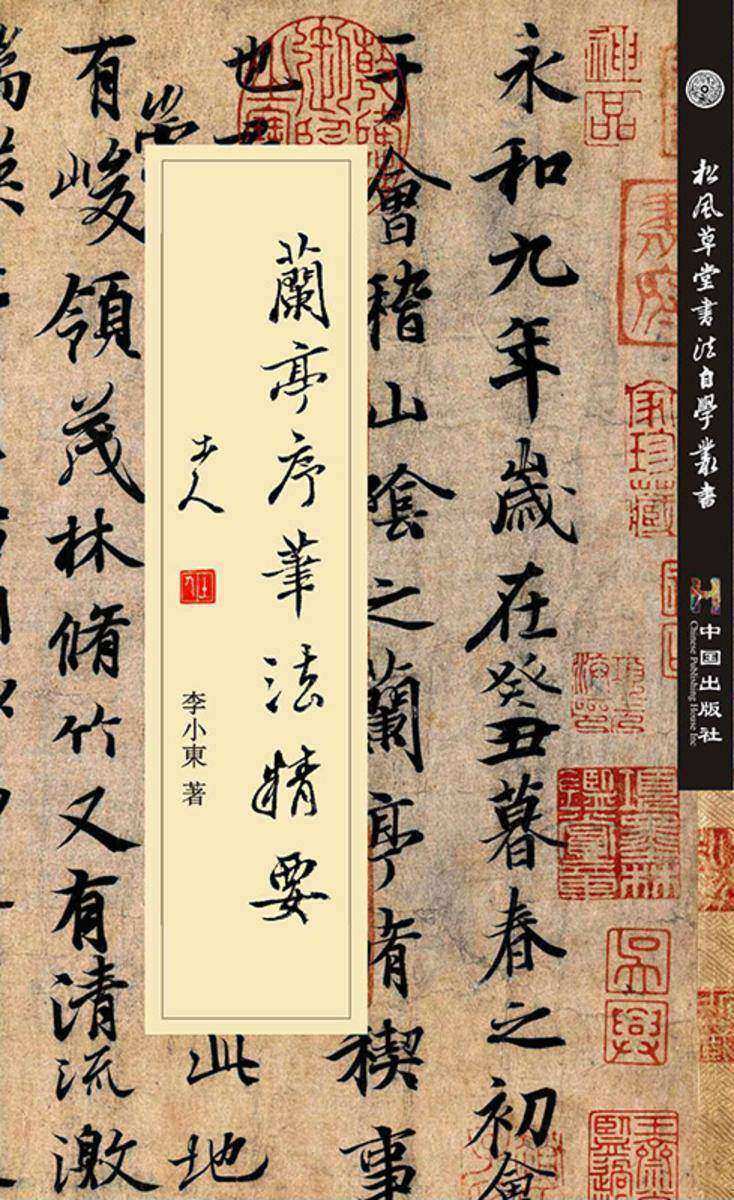 松風草堂書法自學叢書
中国出版社
Chinese Publishing House Inc
神品
吳興
永和九年歲在癸丑暮春之初會
于會稽山陰之蘭亭脩稧事
也
此地
有峻領茂林脩竹又有清流激
崇
蘭亭序筆法精要
李小東 著